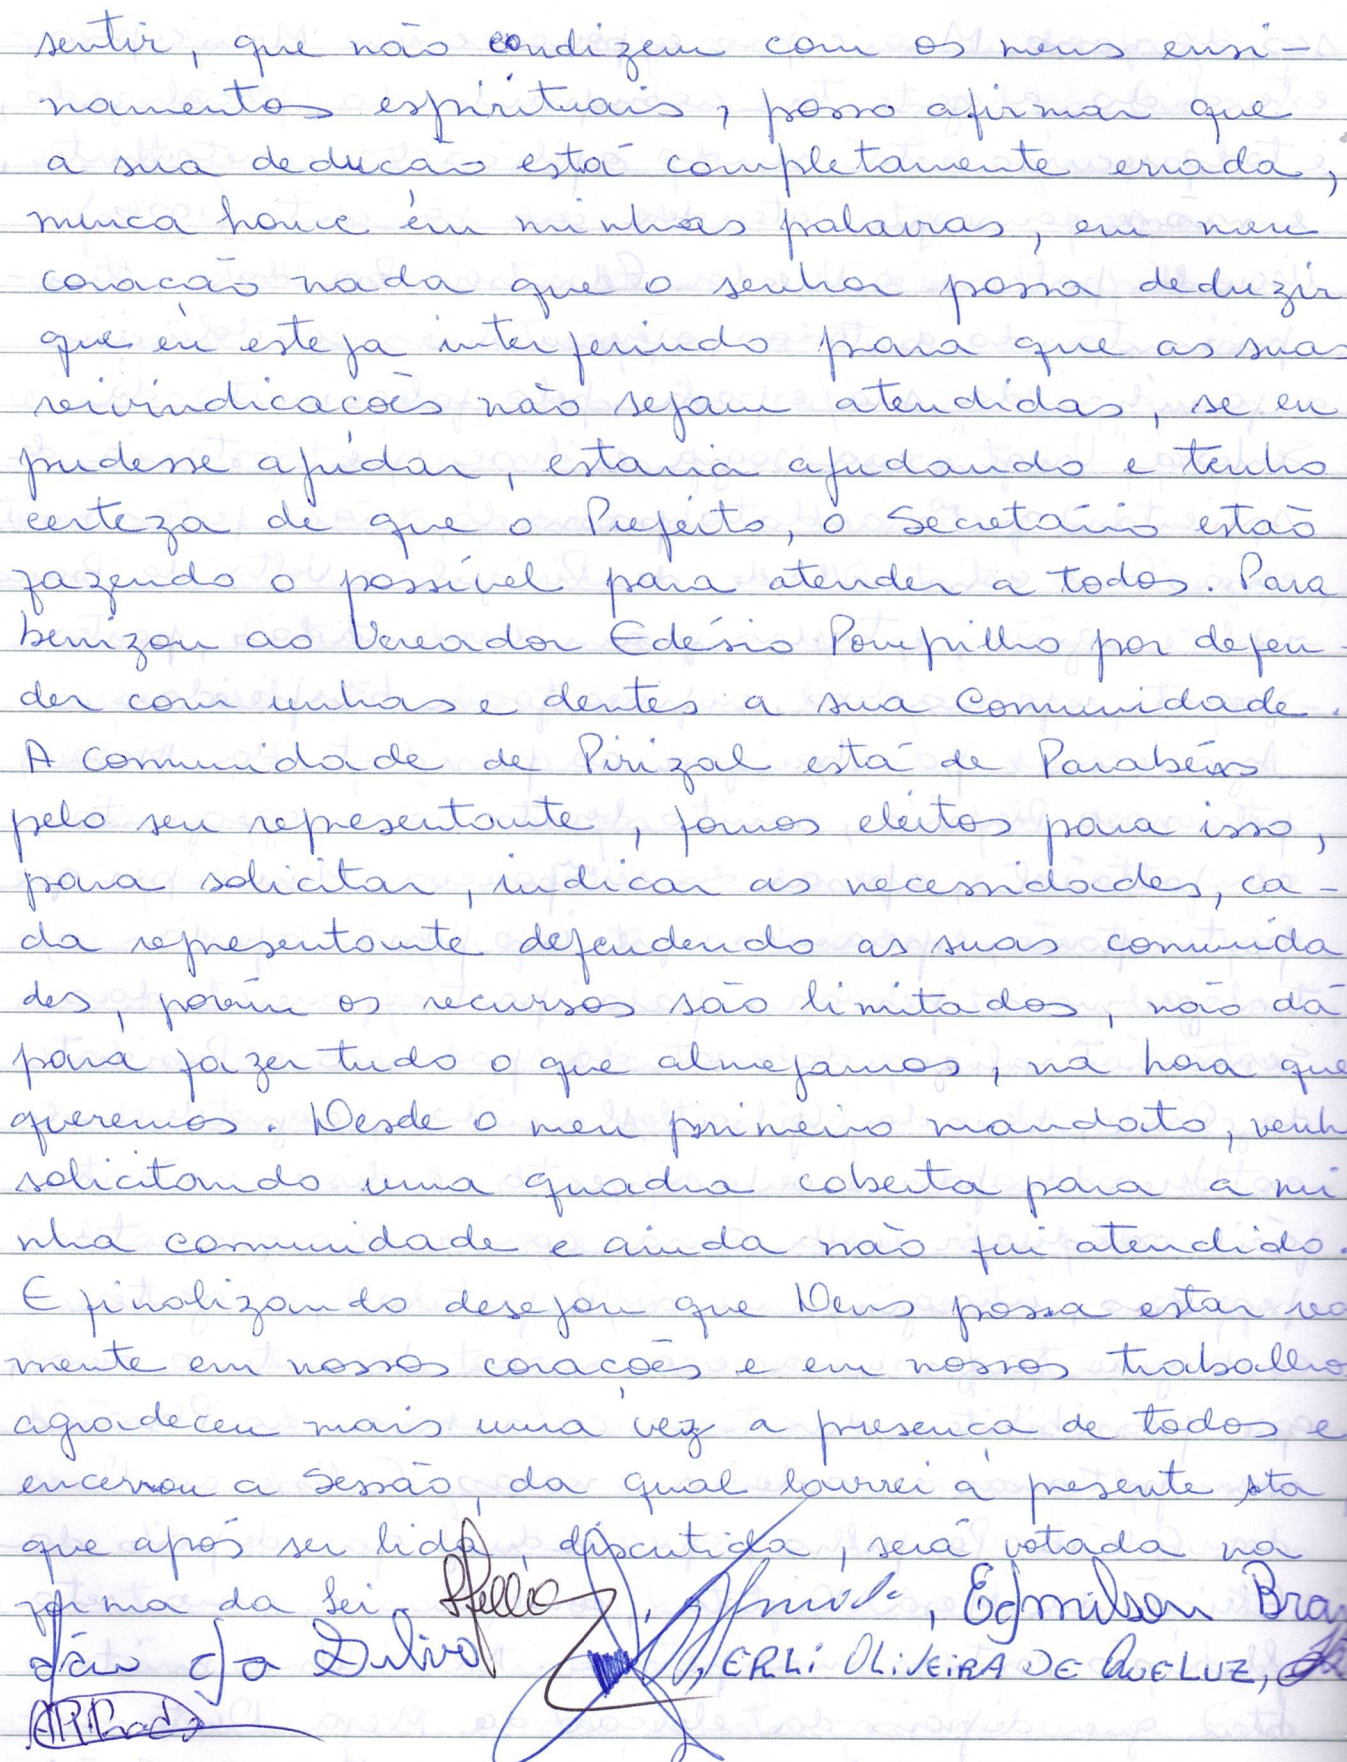 sentir, que não condizem com os meus ensi-
namentos espirituais, posso afirmar que
a sua dedução está completamente errada,
nunca houve em minhas palavras, em meu
coração nada que o senhor possa deduzir
que eu esteja interferindo para que as suas
reivindicações não sejam atendidas, se eu
pudesse ajudar, estaria ajudando e tenho
certeza de que o Prefeito, o Secretário estão
fazendo o possível para atender a todos. Para
benizou ao Vereador Edésio Pompilho por defen-
der com unhas e dentes a sua Comunidade.
A comunidade de Pirizal está de Parabéns
pelo seu representante, fomos eleitos para isso,
para solicitar, indicar as necessidades, ca-
da representante defendendo as suas comunida
des, porém os recursos são limitados, não dá
para fazer tudo o que almejamos, na hora que
queremos. Desde o meu primeiro mandato, venh
solicitando uma quadra coberta para a mi
nha comunidade e ainda não fui atendido.
E finalizando desejou que Deus possa estar
mente em nossos corações e em nossos trabalho
agradeceu mais uma vez a presença de todos e
encerrou a Sessão, da qual lavrei a presente Ata
que após ser lida, discutida, será votada na
forma da Lei. , Edmilson Bra
dão da Silva , ERLI OLIVEIRA DE QUELUZ,